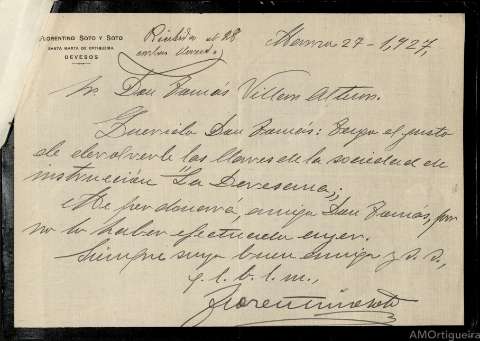 FLORENTINO SOTO Y SOTO
SANTA MARTA DE ORTIGUEIRA
DEVESOS
Recibida el 28
Marzo 27-1,927,
Sr Don Tomás Villar
Querido Don Tomás: Tengo el gusto
de devolverle las llaves de la sociedad de
instrucción "La Devesana",
Me perdonará, amigo Don Tomás, por
no lo haber efectuado ayer.
Siempre suyo buen amigo y s. s,
q. l. b. l. m.,
Florentino Soto
AMOrtigueira